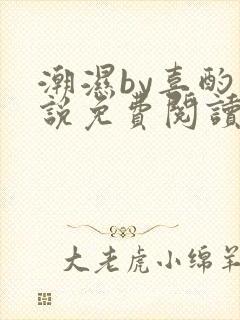 潮濕by喜酌
說免費閱讀
大老虎小绵羊